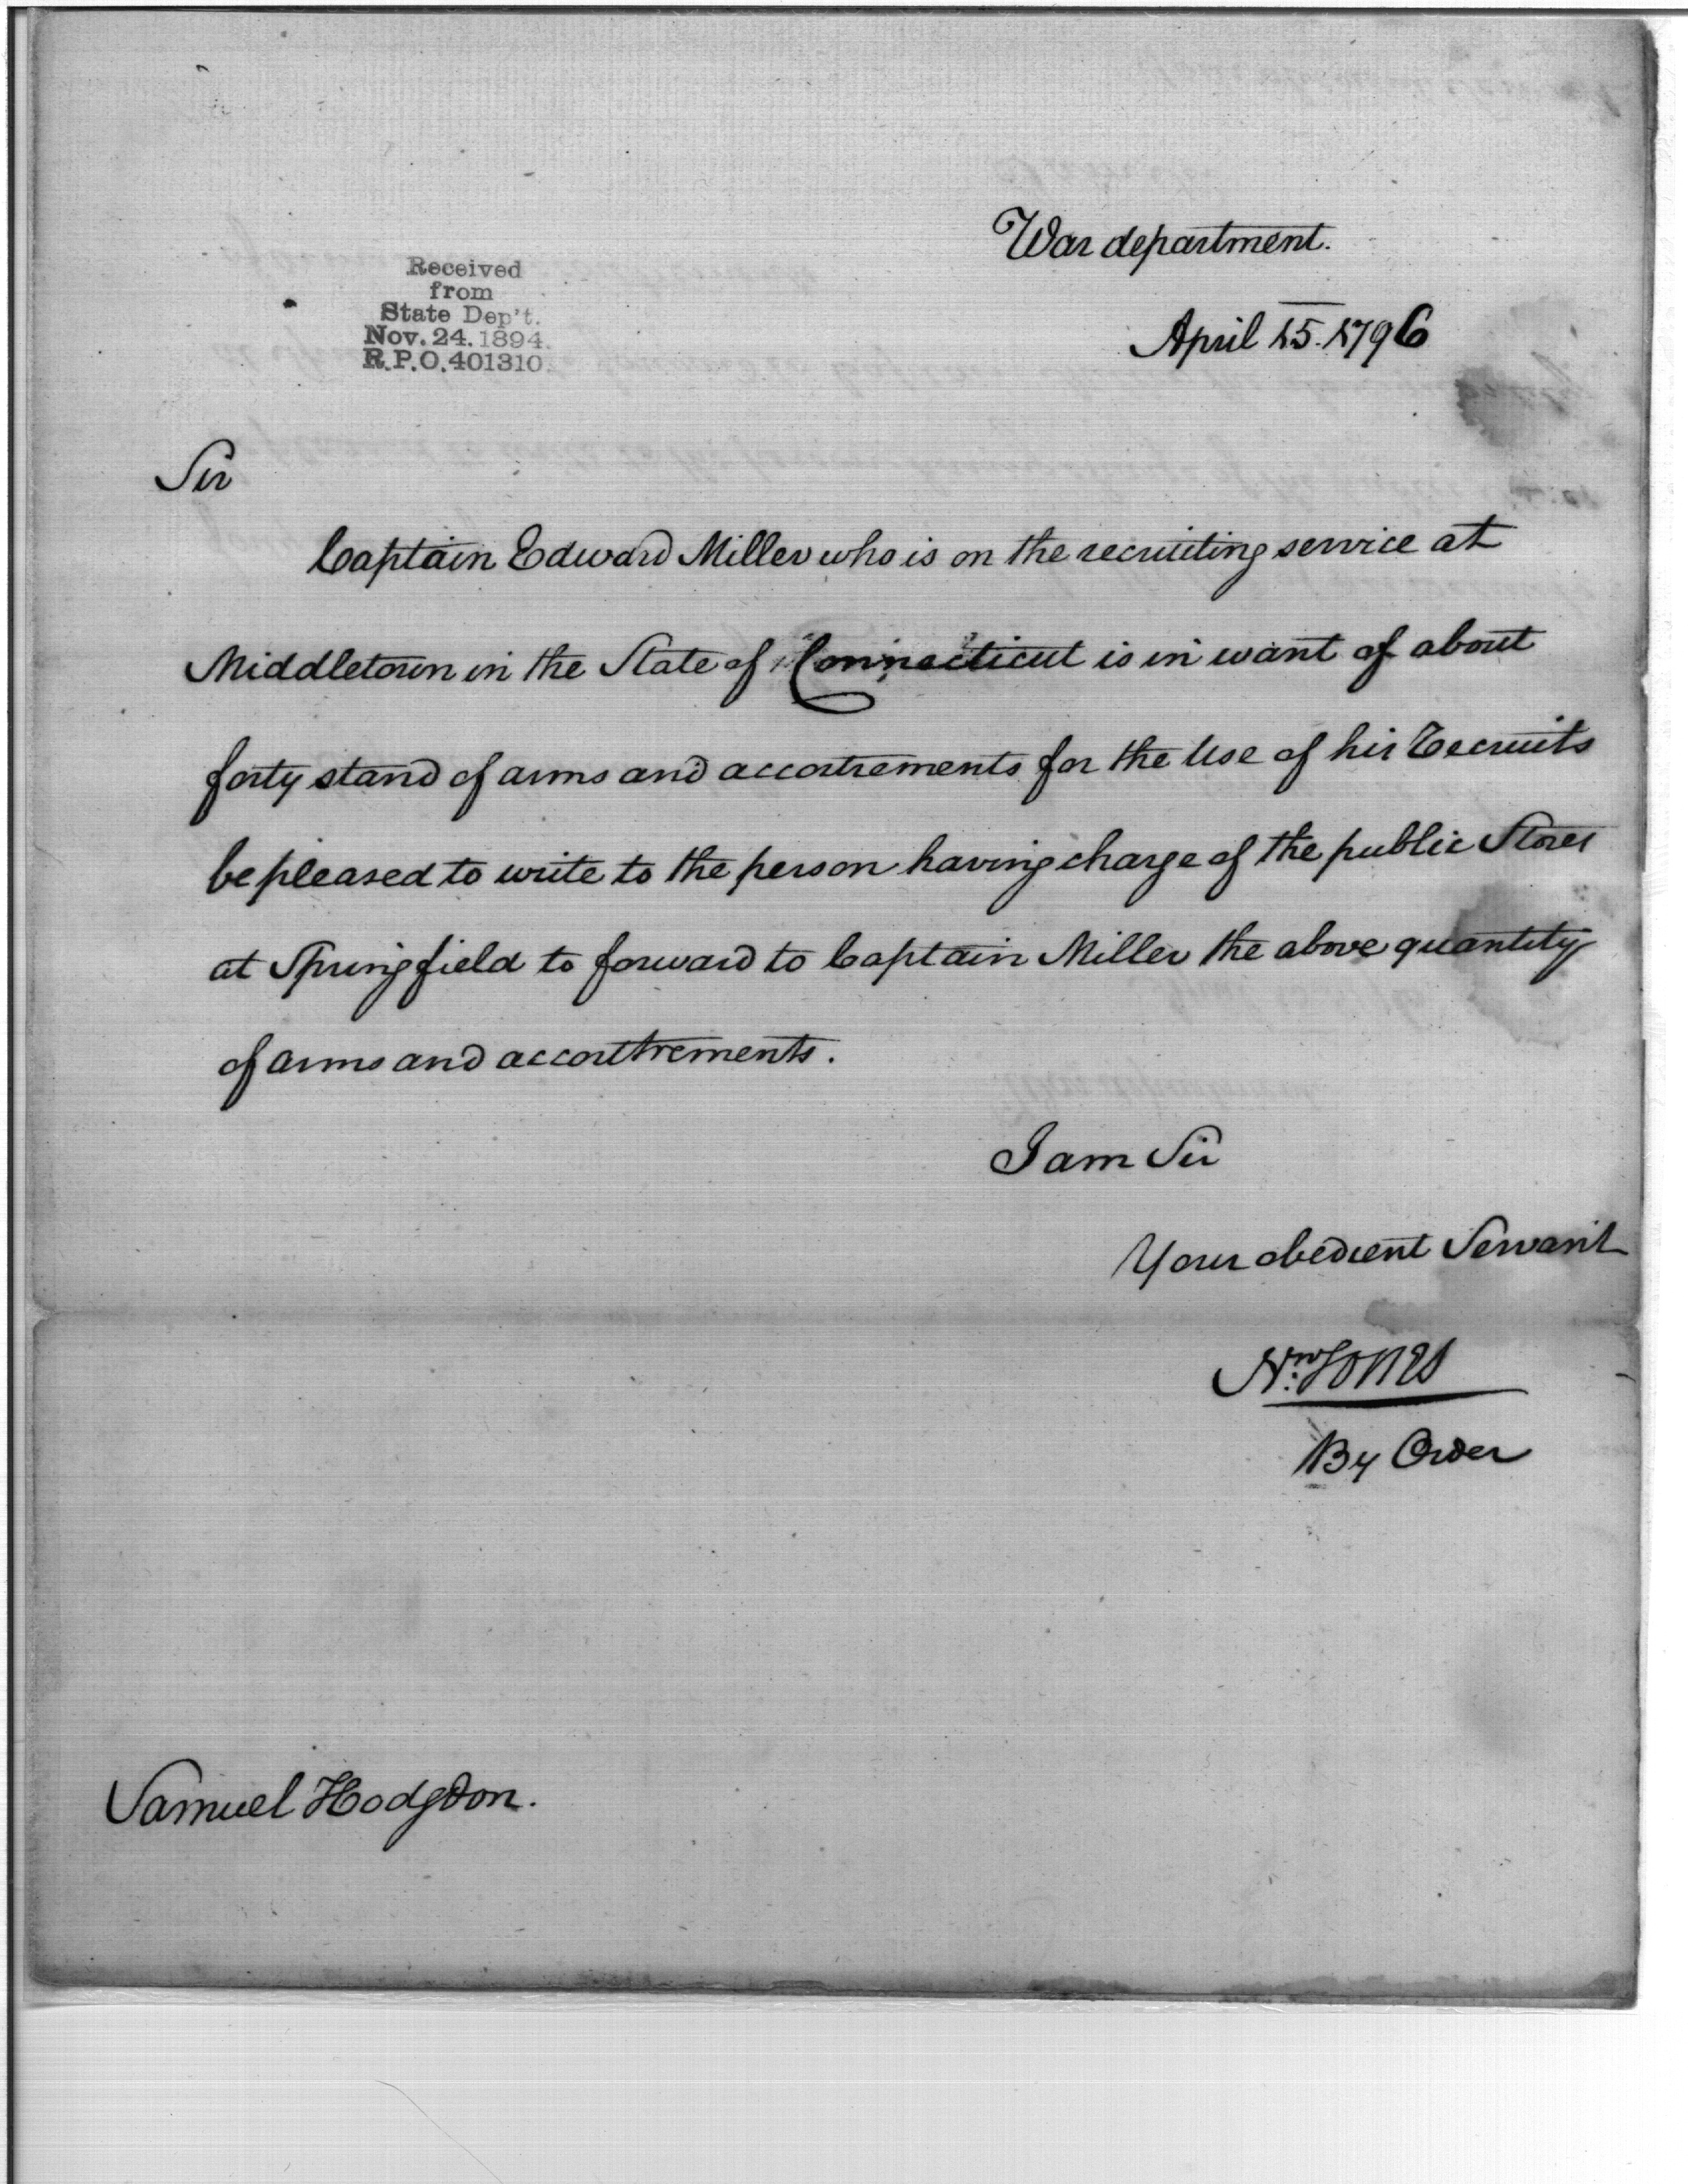 War department.
Received
from
State Dep't.
Nov. 24. 1894.
R.P.O. 401310.
April 15. 1796
Sir
Captain Edward Miller who is on the recruiting service at
Middletown in the State of Connecticut is in want of about
forty stand of arms and accoutrements for the Use of his Recruits
be pleased to write to the person having charge of the public Stores
at Springfield to forward to Captain Miller the above quantity
of arms and accouttrements.
I am Sir
Your obedient Servant
Nw. Jones
By Order
Samuel Hodgdon.